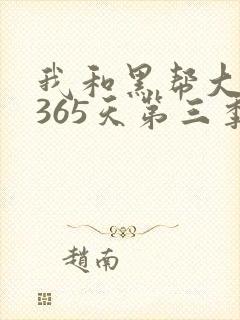 我和黑帮大
365天第三季
趙南